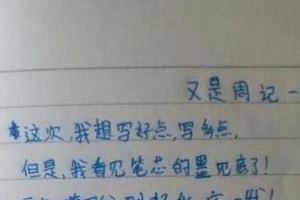 又是周记一
这次,我想写好点,写多点,
但是,我看见笔芯的墨见底了!